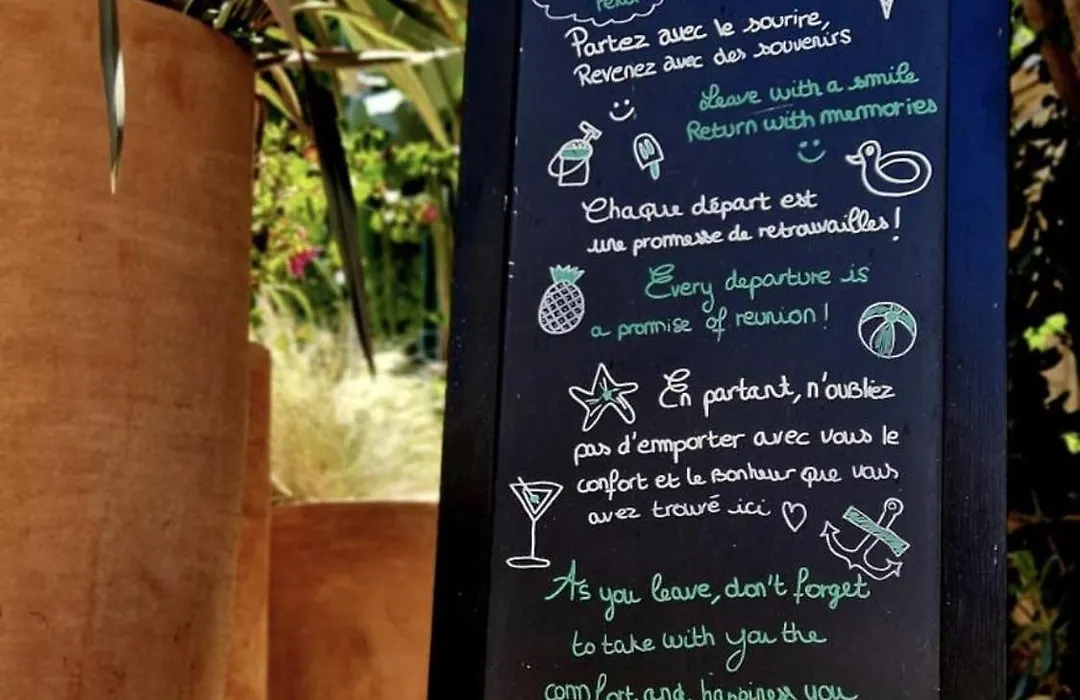 Partez avec le sourire,
Revenez avec des souvenirs
Leave with a smile
Return with memories
Chaque départ est
une promesse de retrouvailles!
Every departure is
a promise of reunion!
En partant, n'oubliez
pas d'emporter avec vous le
confort et le bonheur que vous
avez trouvé ici
As you leave, don't forget
to take with you the
comfort and happiness you